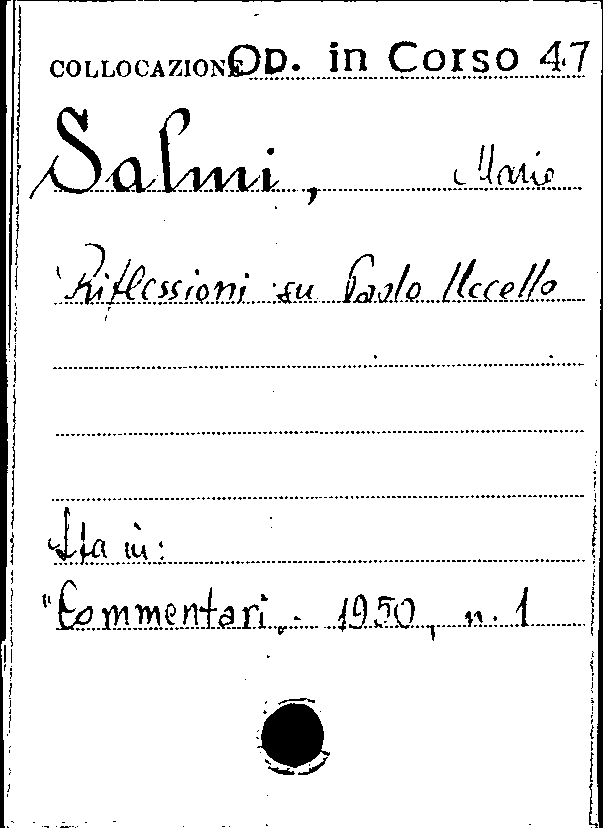 COLLOCAZIONE Op. in Corso 47
Salmi, Mario
Riflessioni su Paolo Uccello
Sta in:
"Commentari,- 1950, n. 1